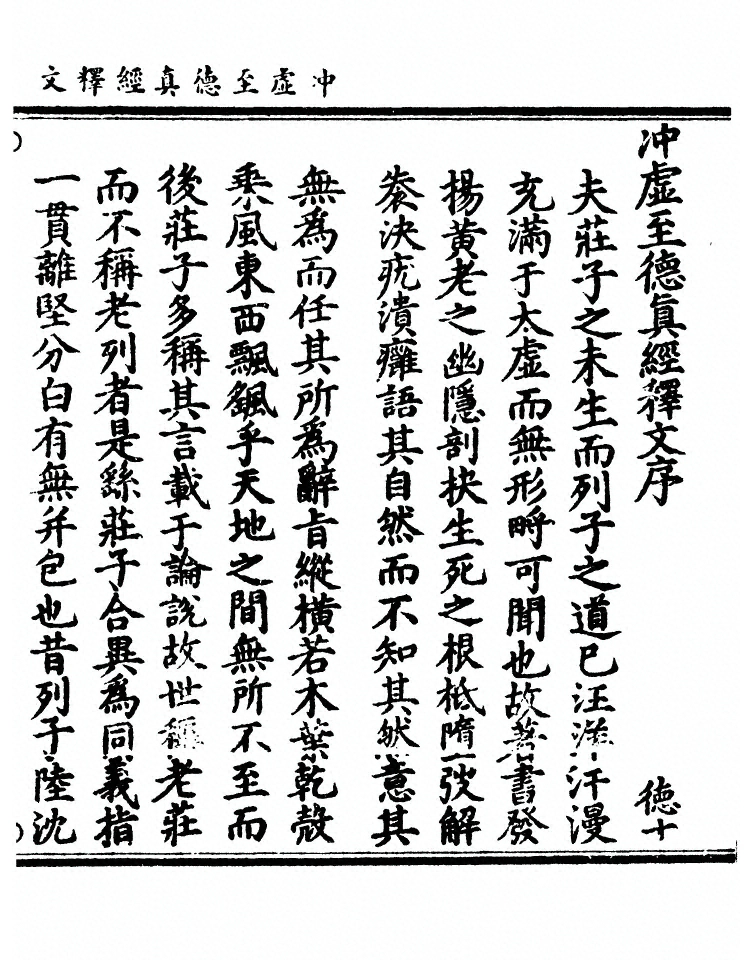 冲虛至德真經釋文
冲虛至德真經釋文序
德十
夫莊子之未生而列子之道已汪洋汗漫
充滿于太虛而無形畤可聞也故著書發
揚黃老之幽隱剖抉生死之根柢隋弢解
袠決疣潰癰語其自然而不知其然意其
無為而任其所為辭旨縱橫若木葉乾殼
乘風東西飄飖乎天地之間無所不至而
後莊子多稱其言載于論說故世稱老莊
而不稱老列者是繇莊子合異為同義指
一貫離堅分白有無并包也昔列子陸沈